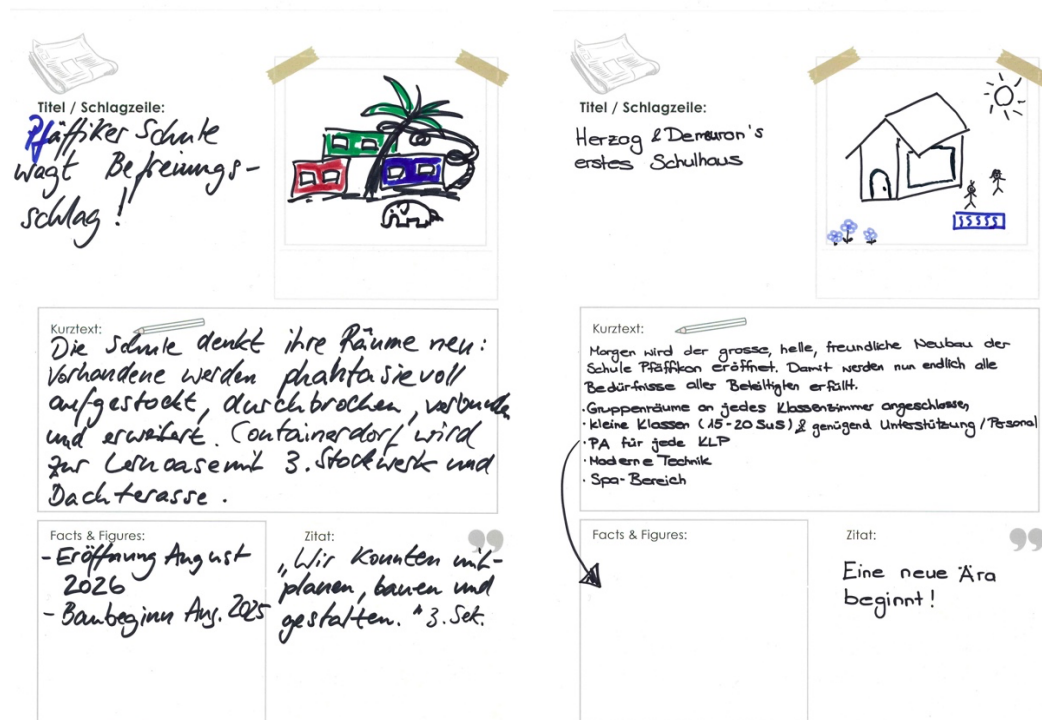 Titel / Schlagzeile:
Pfäffiker Schule
wagt Befreiungs-
schlag!
Kurztext:
Die Schule denkt ihre Räume neu:
Vorhandene werden phantasievoll
aufgestockt, durchbrochen, verbunden
und erweitert. Containerdorf wird
zur Lernoase mit 3. Stockwerk und
Dachterasse.
Facts & Figures:
- Eröffnung August
2026
- Baubeginn Aug. 2025
Zitat:
„Wir konnten mit-
planen, bauen und
gestalten." 3. Sek.
Titel / Schlagzeile:
Herzog & Demeuron's
erstes Schulhaus
Kurztext:
Morgen wird der grosse, helle, freundliche Neubau der
Schule Pfäffikon eröffnet. Damit werden nun endlich alle
Bedürfnisse aller Beteiligten erfüllt.
· Gruppenräume an jedes Klassenzimmer angeschlossen
· kleine Klassen (15-20 SuS) & genügend Unterstützung / Personal
· PA für jede KLP
· Moderne Technik
· Spa-Bereich
Facts & Figures:
Zitat:
Eine neue Ära
beginnt!